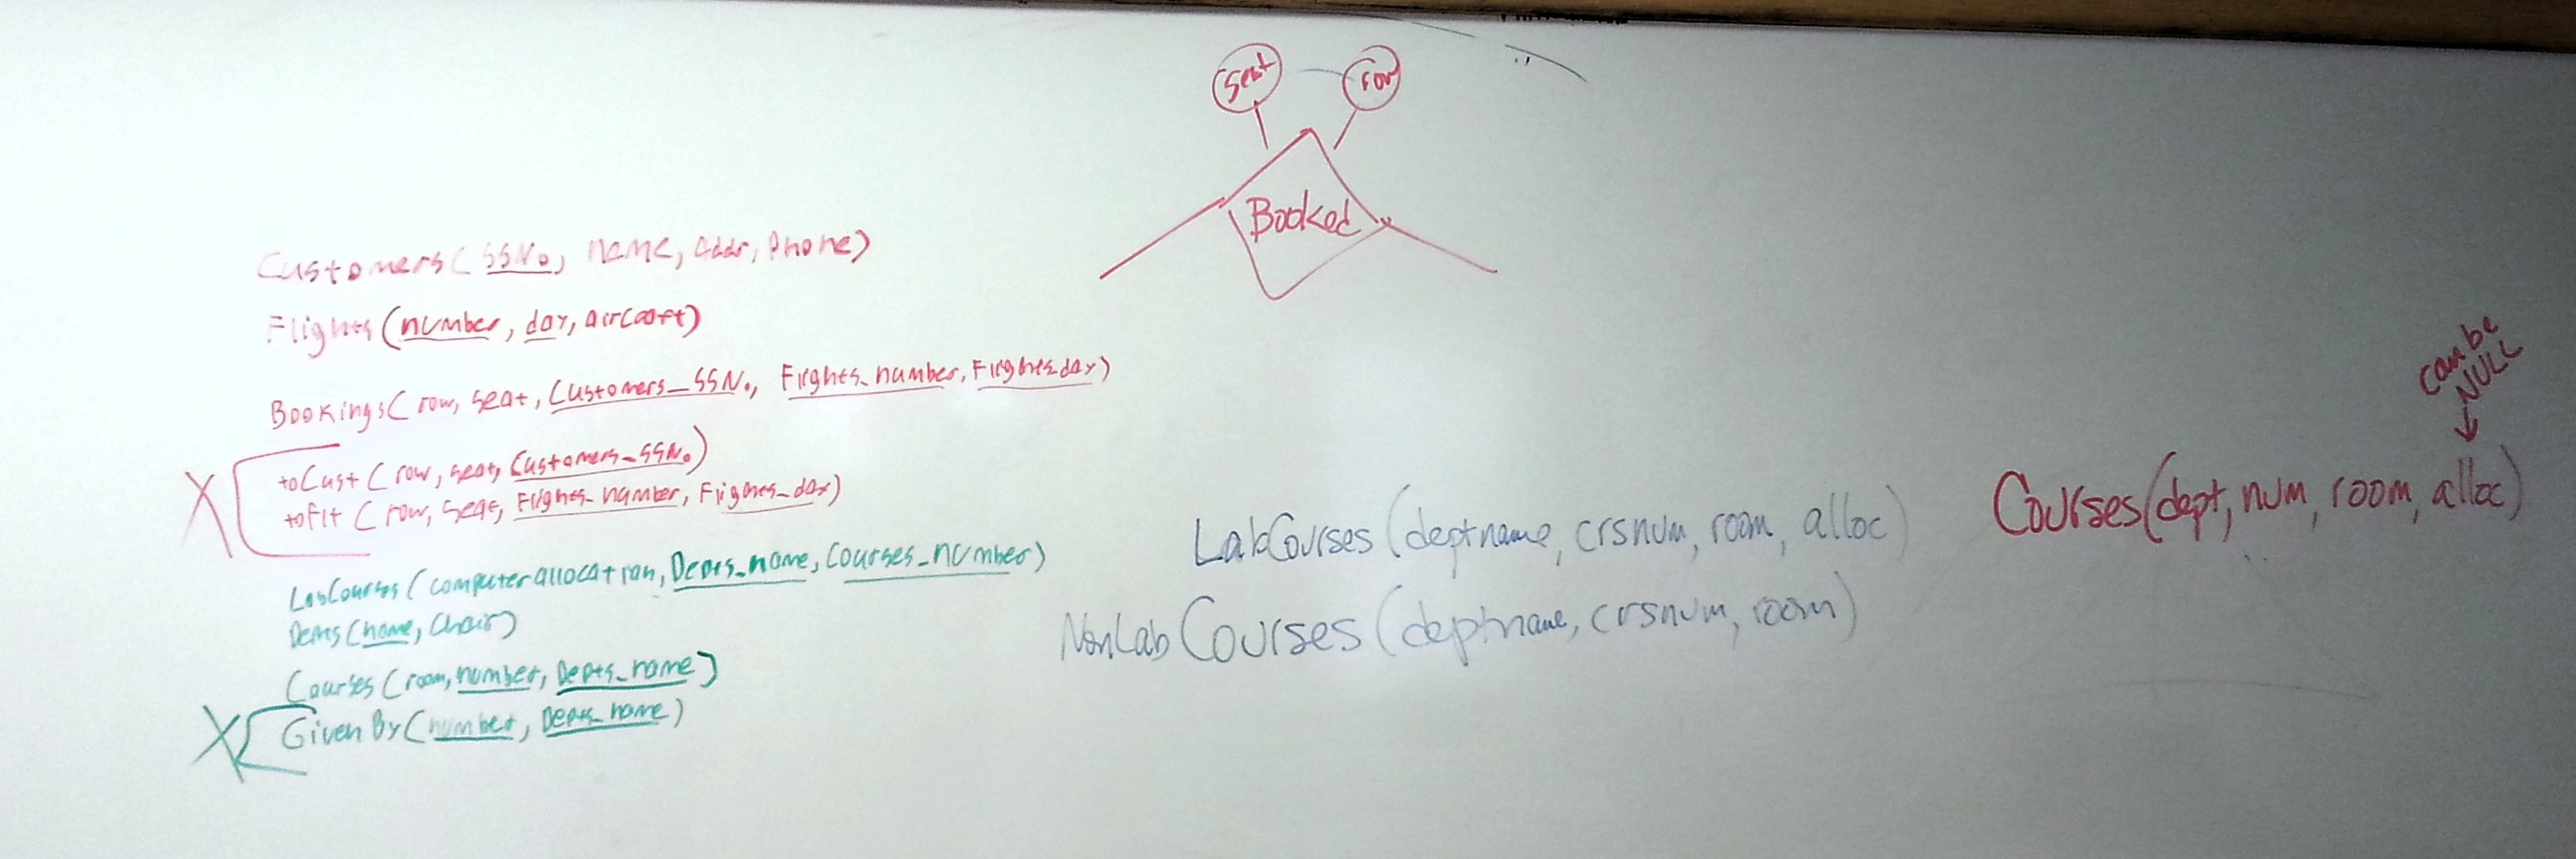 seat row
Booked
Customers(SSNo, name, addr, phone)
Flights(number, day, aircraft)
Bookings(row, seat, Customers_SSNo, Flights_number, Flights_day)
X
toCust(row, seat, Customers_SSNo)
toFlt(row, seat, Flights_number, Flights_day)
LabCourses(computerallocation, Depts_name, Courses_number)
Depts(name, chair)
Courses(room, number, Depts_name)
X
GivenBy(number, Depts_name)
LabCourses(deptname, crsnum, room, alloc)
NonLabCourses(deptname, crsnum, room)
can be
NULL
Courses(dept, num, room, alloc)